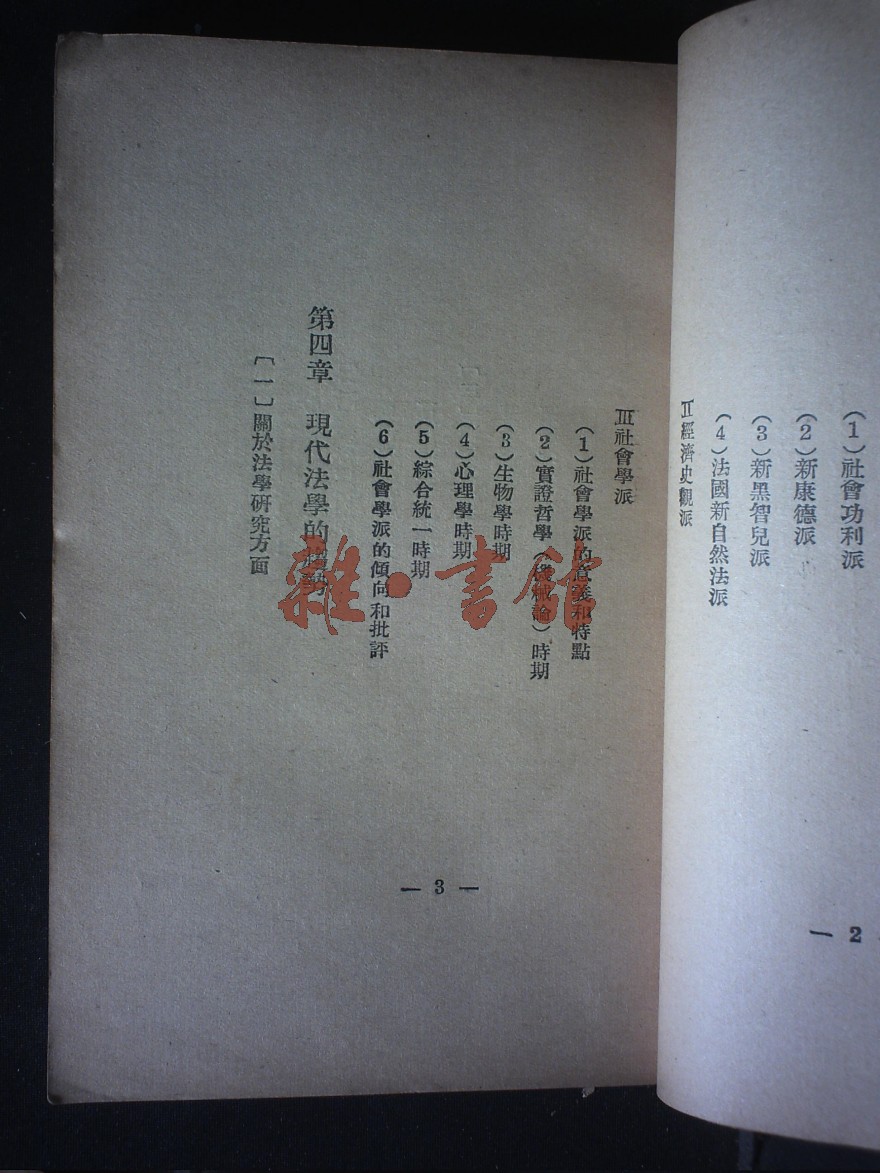 (1)社會功利派
(2)新康德派
(3)新黑智兒派
(4)法國新自然法派
II經濟史觀派
— 2
III社會學派
(1)社會學派的意義和特點
(2)實證哲學(機械論)時期
(3)生物學時期
(4)心理學時期
(5)綜合統一時期
(6)社會學派的傾向和批評
第四章 現代法學的趨勢
〔一〕關於法學研究方面
— 3 —
雜·書館